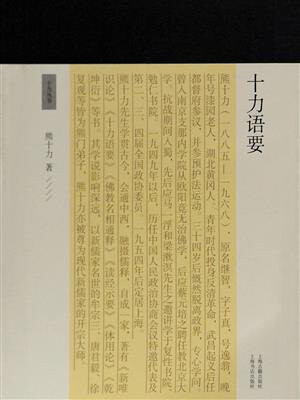 十力语要
上海古籍出版社
上海书店出版社
熊十力(一八八五—一九六八),原名继智,字子真,号逸翁,晚
年号漆园老人,湖北黄冈人。青年时代投身反清革命,武昌起义后任
都督府参议,并参预护法运动。三十四岁后慨然脱离政界,专心学问,
曾入南京支那内学院从欧阳竟无治佛学,后应蔡元培之聘任教北京大
学。抗战期间入蜀,先后应马一浮和梁漱溟先生之邀讲学于复性书院、
勉仁书院。一九四九年以后,历任中国人民政治协商会议特邀代表及
第二、三、四届全国政协委员。一九五四年后定居上海。
熊十力先生学贯古今,会通中西,融摄儒释,自成一家,著有《新唯
识论》《十力语要》《佛教名相通释》《读经示要》《体用论》《乾
坤衍》等书,其学说影响深远,以新儒家名世的牟宗三、唐君毅、徐
复观等皆为熊门弟子,熊十力亦被尊为现代新儒家的开宗大师。
十力丛书
熊十力 著 ////